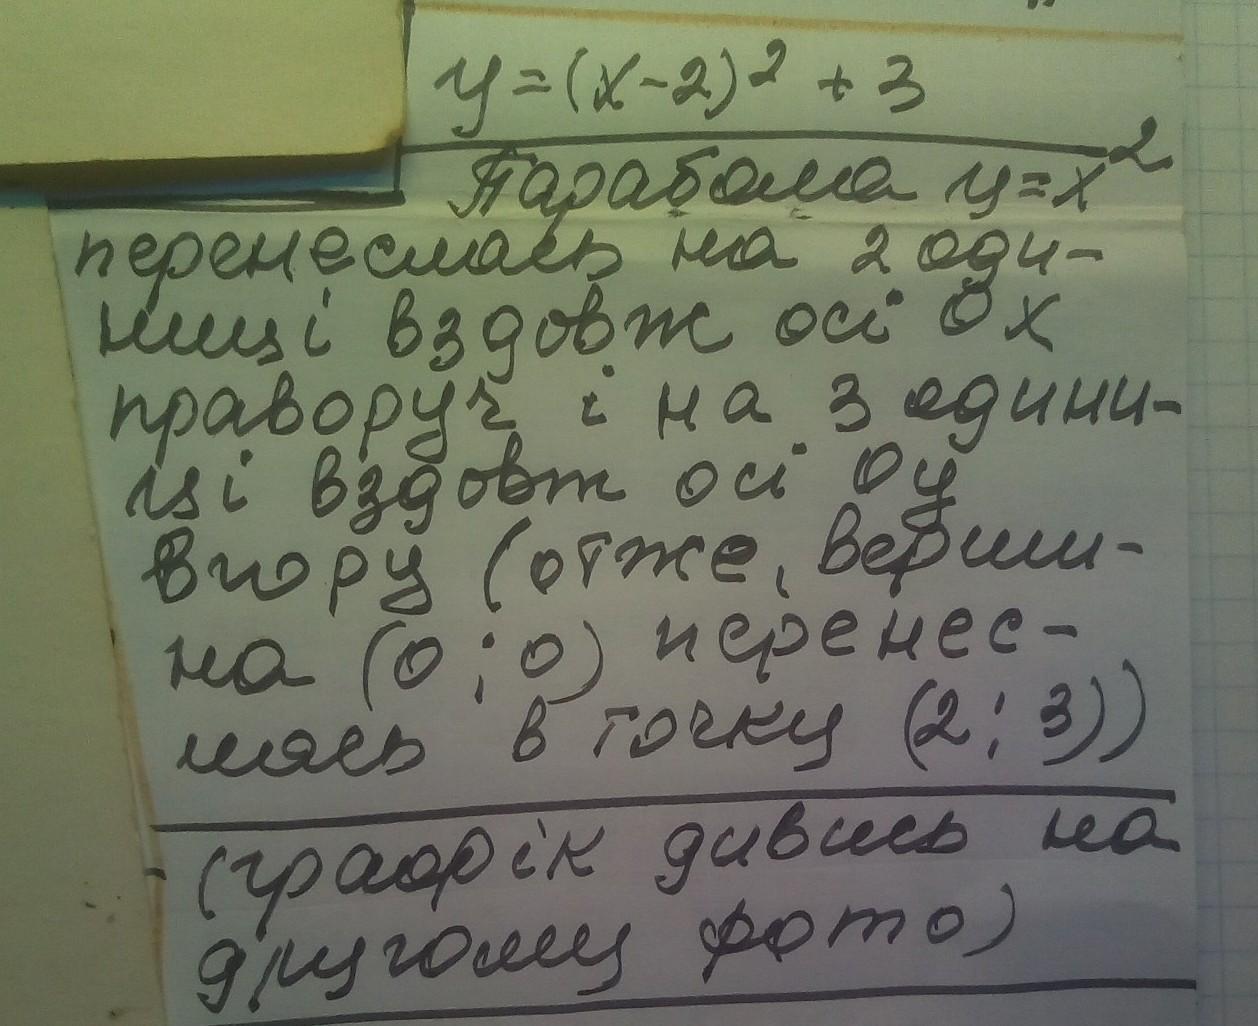 y=(x-2)² + 3
Парабола y=x²
перенеслась на 2 оди-
ниці вздовж осі Ox
праворуч і на 3 одини-
ці вздовж осі Oy
вгору (отже, верши-
на (0;0) перенес-
лась в точку (2;3))
(графік дивись на
другому фото)